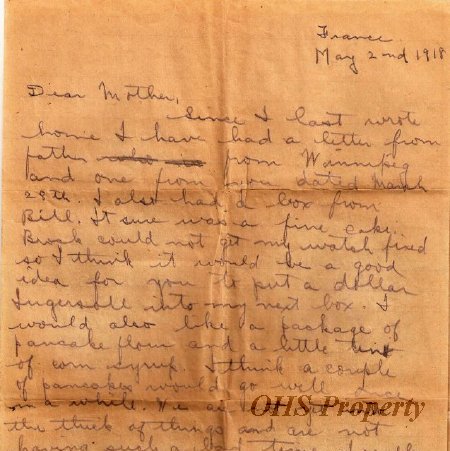 France
May 2nd 1918
Dear Mother,
Since I last wrote
home I have had a letter from
father from Winnipeg
and one from you dated March
29th. I also had a box from
Bill. It sure was a fine cake.
Brock could not get my watch fixed
so I think it would be a good
idea for you to put a dollar
Ingersoll into my next box. I
would also like a package of
pancake flour and a little tin
of corn syrup. I think a couple
of pancakes would go well once
in a while. We are
OHS Property
the thick of things and are not
having such a bad time